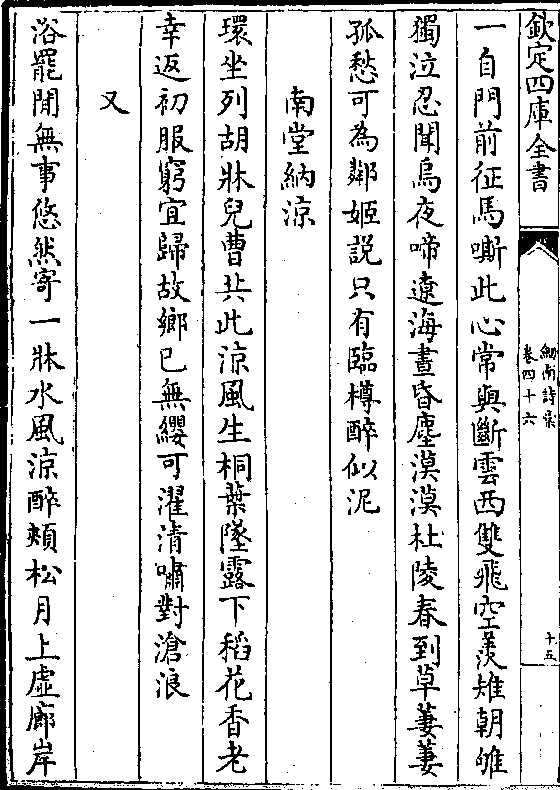 欽定四庫全書
劒南詩集
卷四十六
十五
一自門前征馬嘶此心常與斷雲西雙飛空羨雉朝雊
獨泣忍聞烏夜啼遼海晝昏塵漠漠杜陵春到草萋萋
孤愁可為鄰姬説只有臨樽醉似泥
南堂納涼
環坐列胡牀兒曹共此涼風生桐葉墜露下稻花香老
幸返初服窮宜歸故鄉已無纓可濯清嘯對滄浪
又
浴罷閒無事悠然寄一牀水風涼醉頰松月上虛廊岸